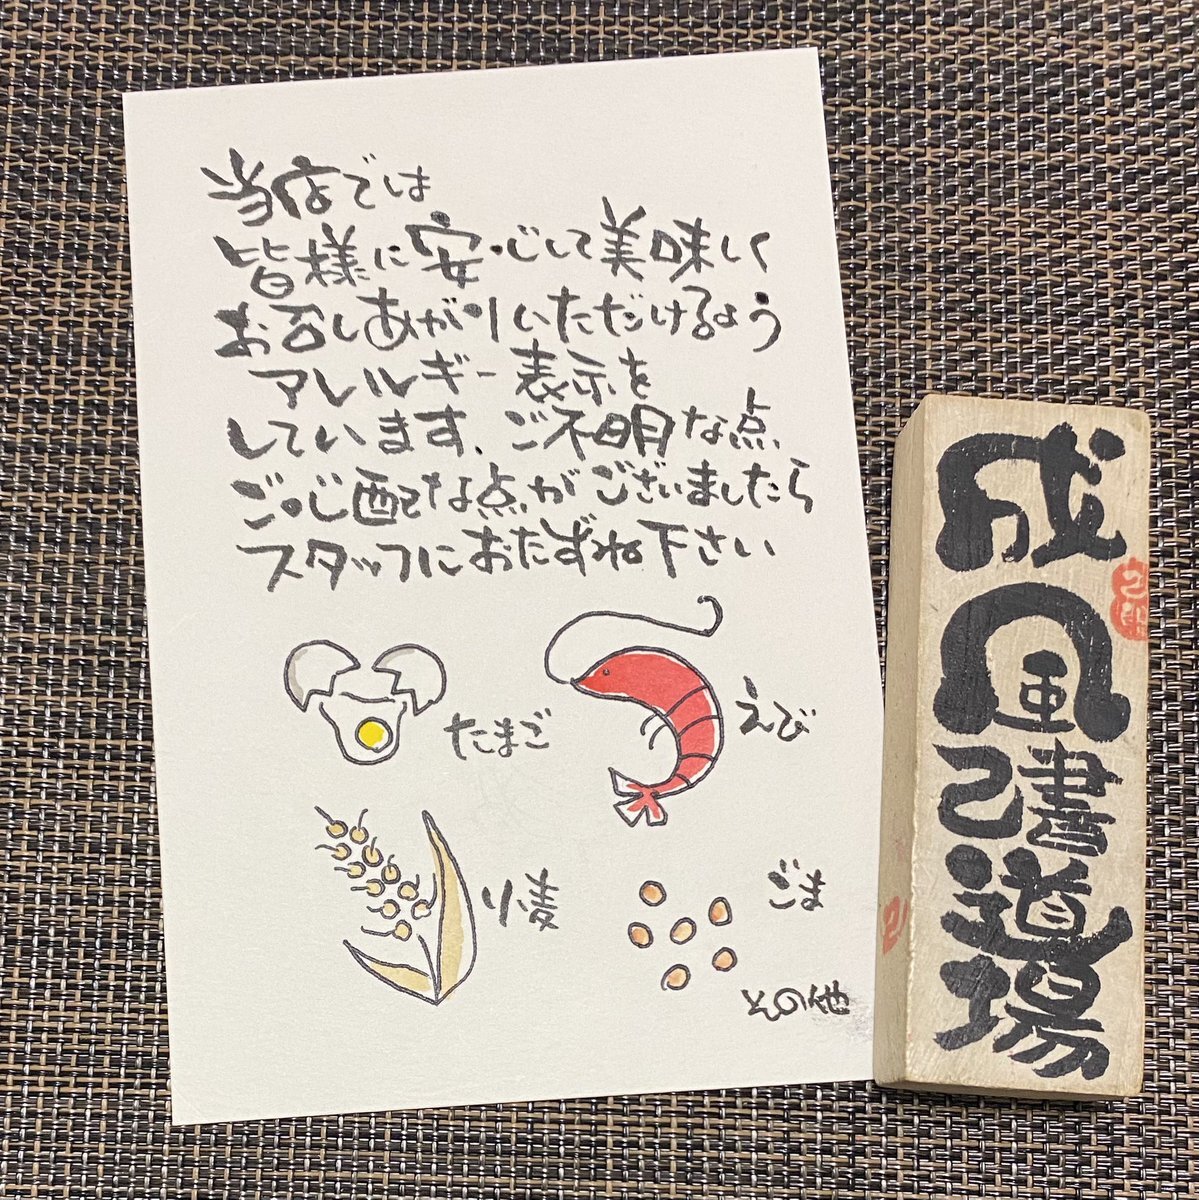 当店では
皆様に安心して美味しく
お召しあがりいただけるよう
アレルギー表示を
しています。ご不明な点
ご心配な点がございましたら
スタッフにおたずね下さい
たまご
えび
小麦
ごま
その他
成風書己道場